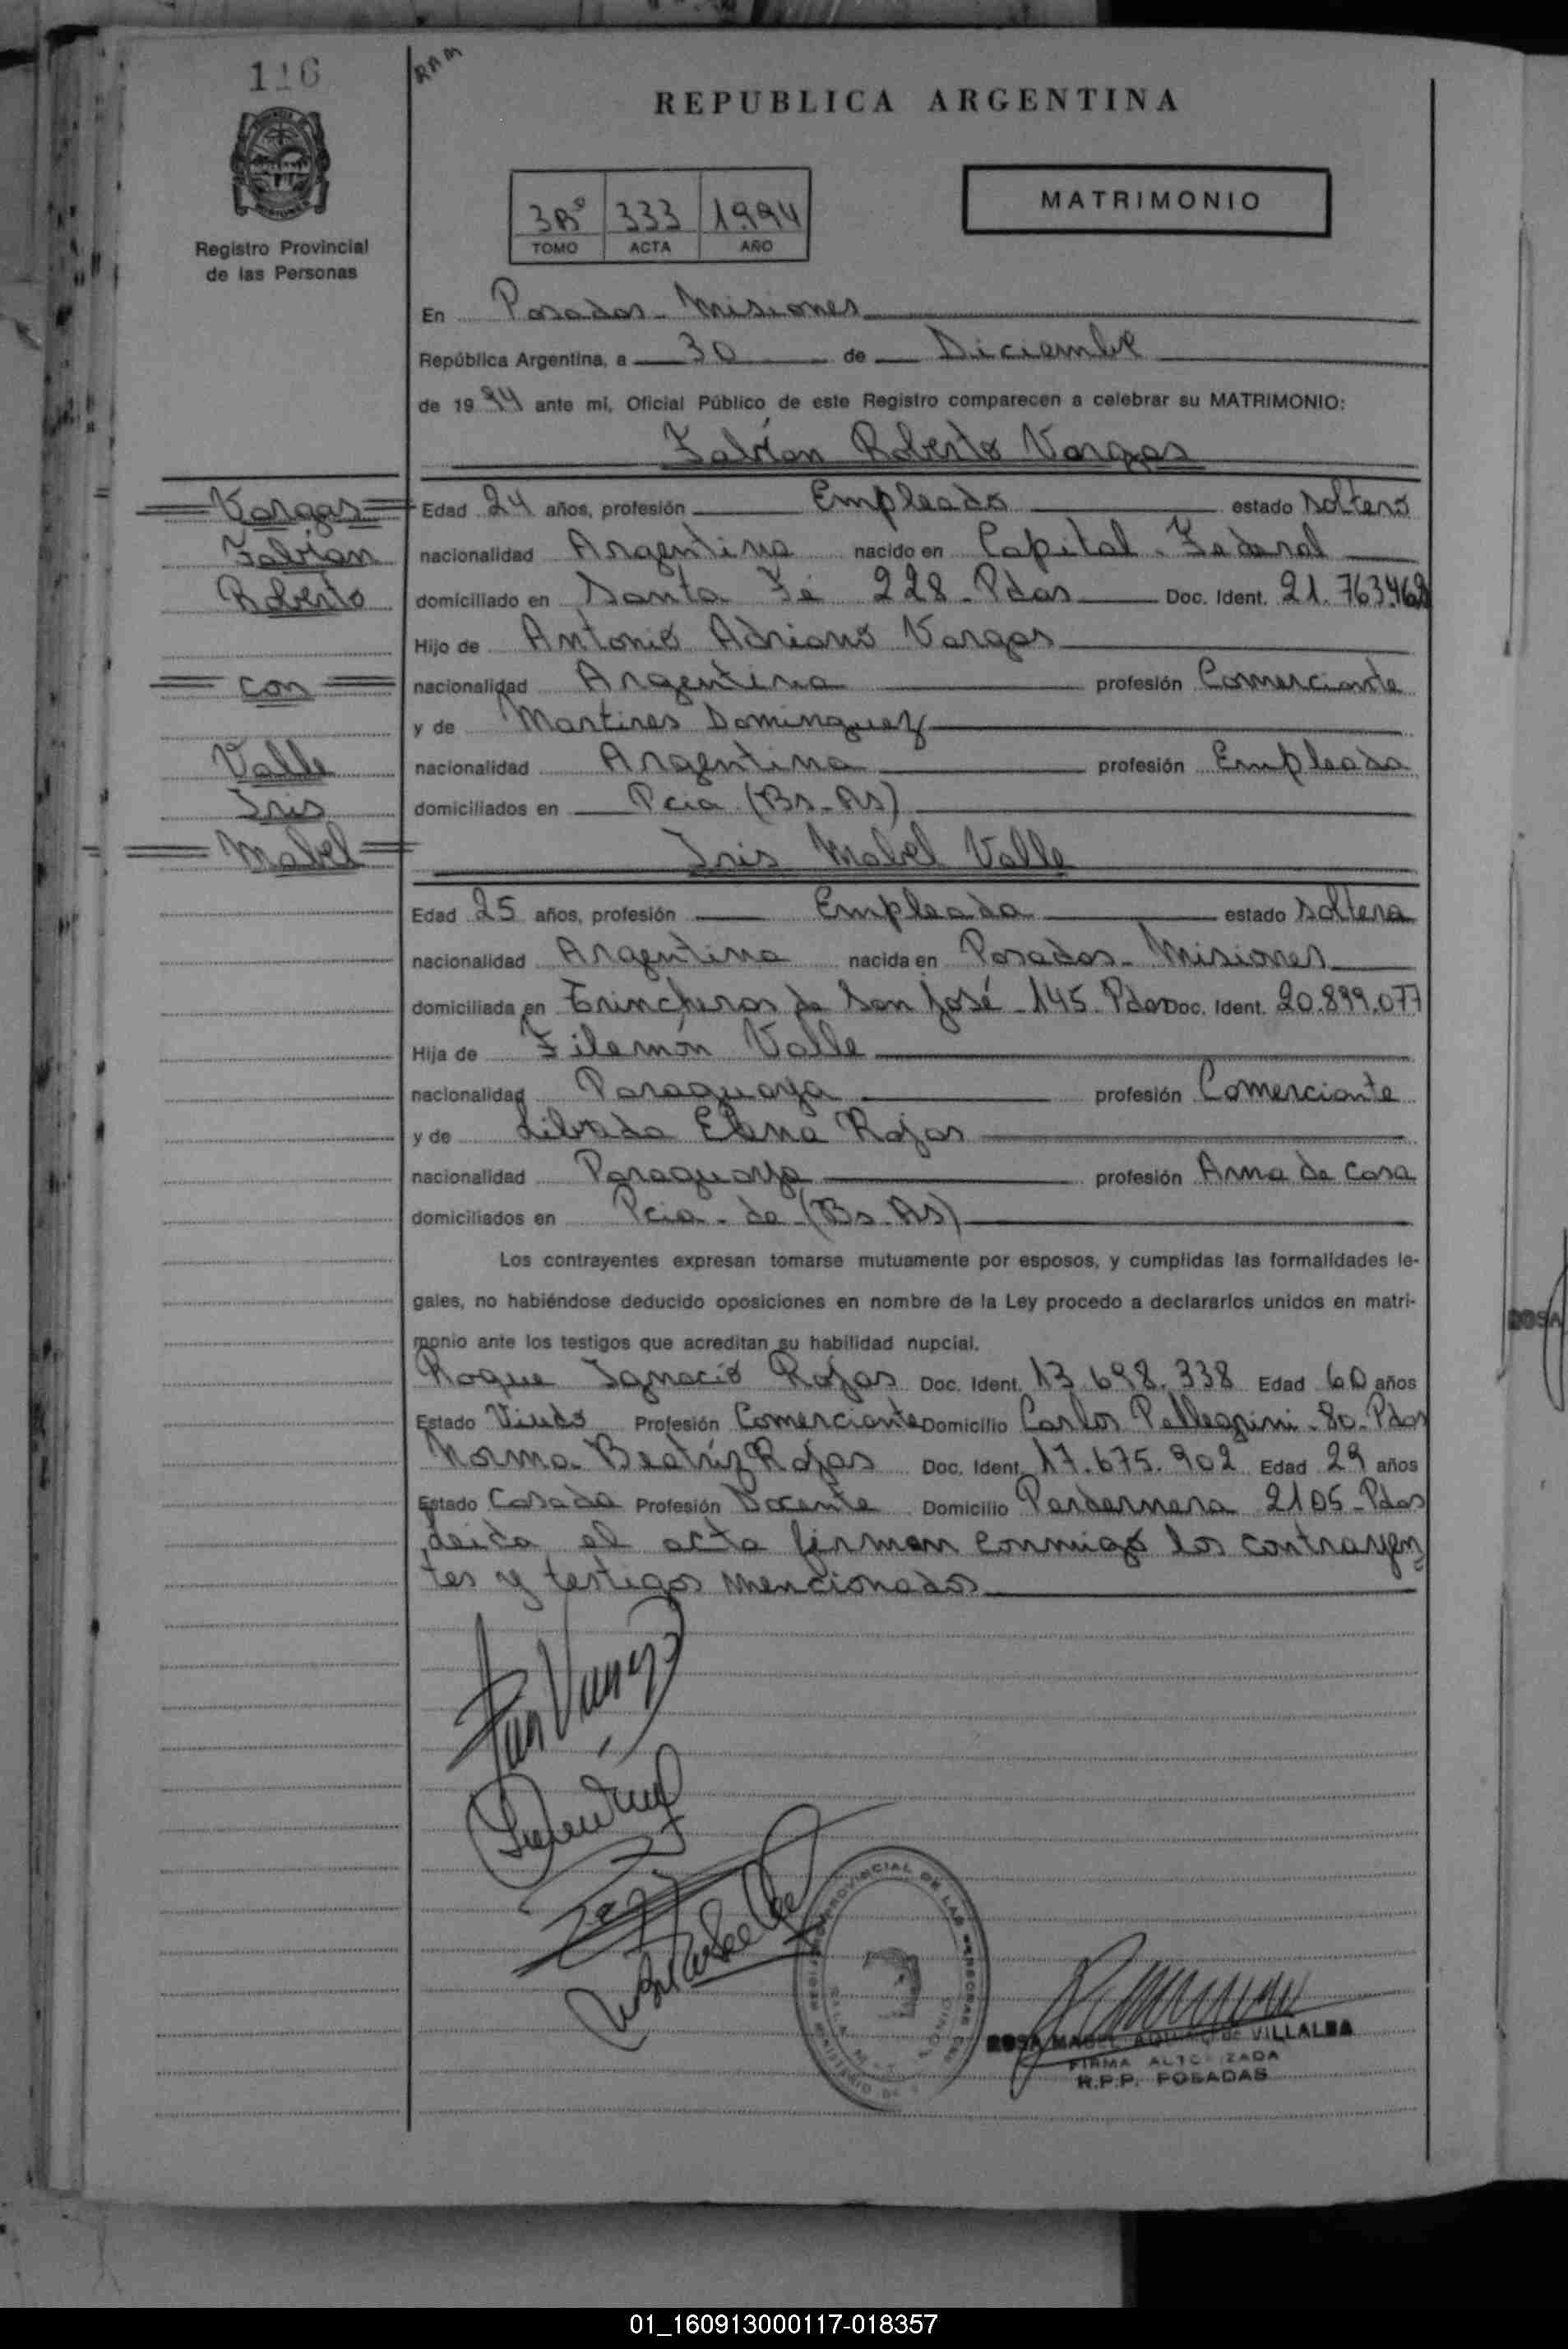 116
RAM
REPUBLICA ARGENTINA
Registro Provincial
de las Personas
3Bº 333 1994
TOMO ACTA AÑO
MATRIMONIO
En Posadas - Misiones
República Argentina, a 30 de Diciembre
de 1994 ante mi, Oficial Público de este Registro comparecen a celebrar su MATRIMONIO:
Fabían Roberto Vargas
Vargas
Fabían
Roberto
con
Valle
Iris
Mabel
Edad 24 años, profesión Empleado estado soltero
nacionalidad Argentina nacido en Capital - Federal
domiciliado en Santa Fé 228 - Pdas Doc. Ident. 21.763.468
Hijo de Antonio Adriano Vargas
nacionalidad Argentina profesión Comerciante
y de Martires Dominguez
nacionalidad Argentina profesión Empleada
domiciliados en Pcia (Bs-As)
Iris Mabel Valle
Edad 25 años, profesión Empleada estado soltera
nacionalidad Argentina nacida en Posadas - Misiones
domiciliada en Trincheras de San José - 145 - Pdas Doc. Ident. 20.899.077
Hija de Filemón Valle
nacionalidad Paraguaya profesión Comerciante
y de Librada Elena Rojas
nacionalidad Paraguaya profesión Ama de Casa
domiciliados en Pcia - de (Bs-As)
Los contrayentes expresan tomarse mutuamente por esposos, y cumplidas las formalidades le-
gales, no habiéndose deducido oposiciones en nombre de la Ley procedo a declararlos unidos en matri-
monio ante los testigos que acreditan su habilidad nupcial.
Roque Ignacio Rojas Doc. Ident. 13.698.338 Edad 60 años
Estado Viudo Profesión Comerciante Domicilio Carlos Pellegrini - 80 - Pdas
Norma Beatríz Rojas Doc. Ident. 17.675.902 Edad 29 años
Estado Casada Profesión Docente Domicilio Perdernera 2105 - Pdas
Leida el acta firman conmigo los contrayen
tes y testigos mencionados
ROSA MABEL de VILLALBA
FIRMA AUTORIZADA
R.P.P. POSADAS
ROSA
01_160913000117-018357